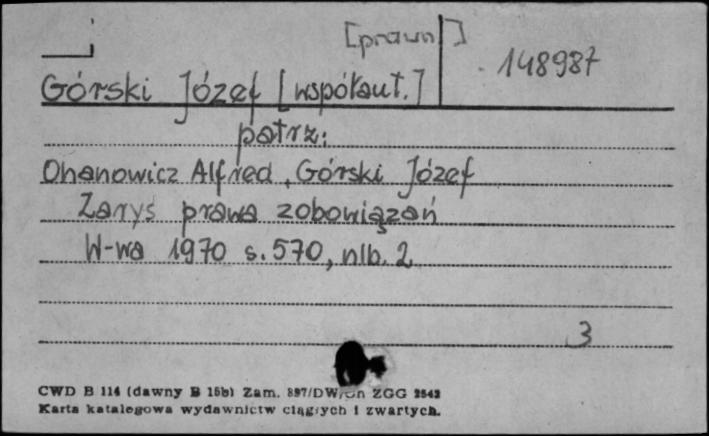 [prawn]
148987
Górski Józef [współaut.]
patrz:
Ohanowicz Alfred, Górski Józef
Zarys prawa zobowiązań
W-wa 1970 s. 570, nlb. 2
3
CWD B 114 (dawny B 15b) Zam. 897/DW/ ZGG 2542
Karta katalogowa wydawnictw ciągłych i zwartych.